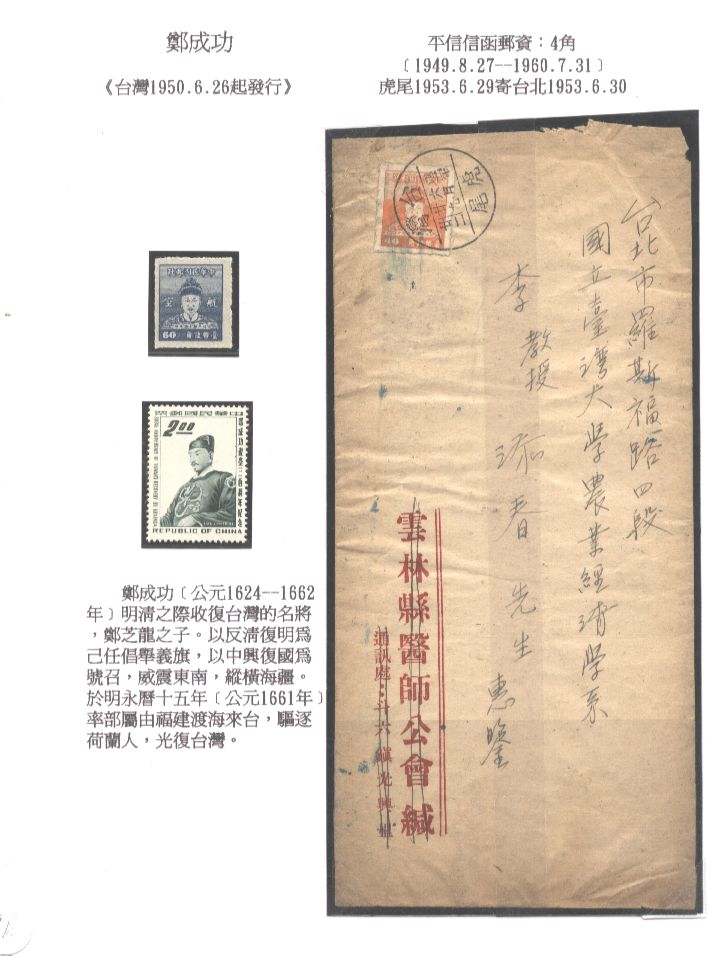 鄭成功
《台灣1950.6.26起發行》
平信信函郵資：4角
〔1949.8.27--1960.7.31〕
虎尾1953.6.29寄台北1953.6.30
航空
60
2.00
REPUBLIC OF CHINA
鄭成功〔公元1624--1662
年〕明清之際收復台灣的名將
，鄭芝龍之子。以反清復明爲
己任倡舉義旗，以中興復國爲
號召，威震東南，縱橫海疆。
於明永曆十五年〔公元1661年〕
率部屬由福建渡海來台，驅逐
荷蘭人，光復台灣。
台灣
虎尾
40
台北市羅斯福路四段
國立臺灣大學農業經濟学系
李教授添春先生惠鑒
雲林縣醫師公會緘
通訊處：斗六鎮光興里